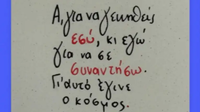 Α, για να γεννηθείς
εσύ, κι εγώ
για να σε
συναντήσω.
Γι' αυτό έγινε
ο κόσμος.